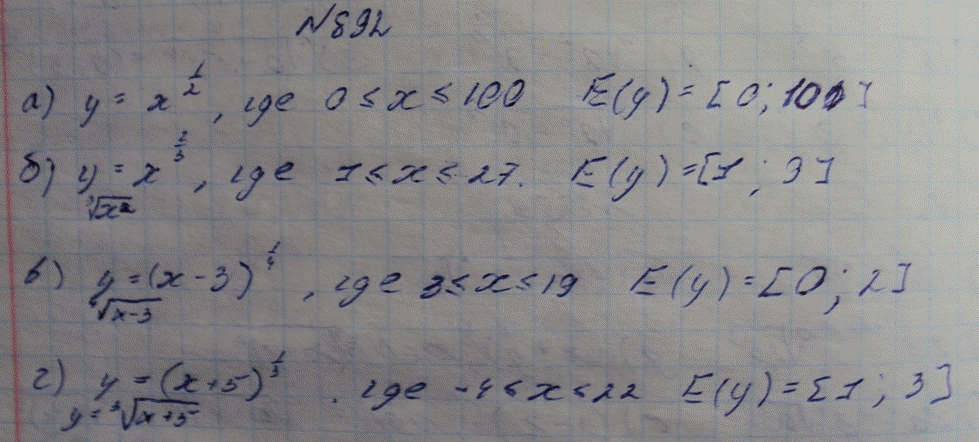 №892
а) y = x^(1/2), где 0 ≤ x ≤ 100 E(y) = [0; 10]
б) y = x^(2/3), где 1 ≤ x ≤ 27. E(y) = [1; 9]
∛x²
в) y = (x - 3)^(1/4), где 3 ≤ x ≤ 19 E(y) = [0; 2]
∜x-3
г) y = (x+5)^(1/3). где -4 ≤ x ≤ 22 E(y) = [1; 3]
y = ∛x+5